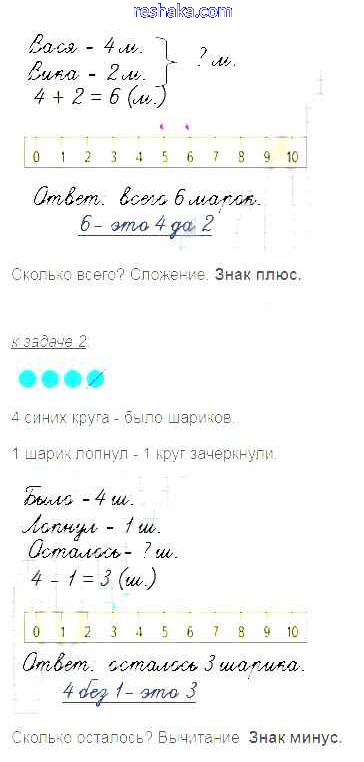 reshaka.com
Вася - 4 м.
Вика - 2 м.
? м.
4 + 2 = 6 (м.)
0 1 2 3 4 5 6 7 8 9 10
Ответ: всего 6 марок.
6 - это 4 да 2
Сколько всего? Сложение. Знак плюс.
к задаче 2:
4 синих круга - было шариков.
1 шарик лопнул - 1 круг зачеркнули.
Было - 4 ш.
Лопнул - 1 ш.
Осталось - ? ш.
4 - 1 = 3 (ш.)
0 1 2 3 4 5 6 7 8 9 10
Ответ: осталось 3 шарика.
4 без 1 - это 3
Сколько осталось? Вычитание. Знак минус.